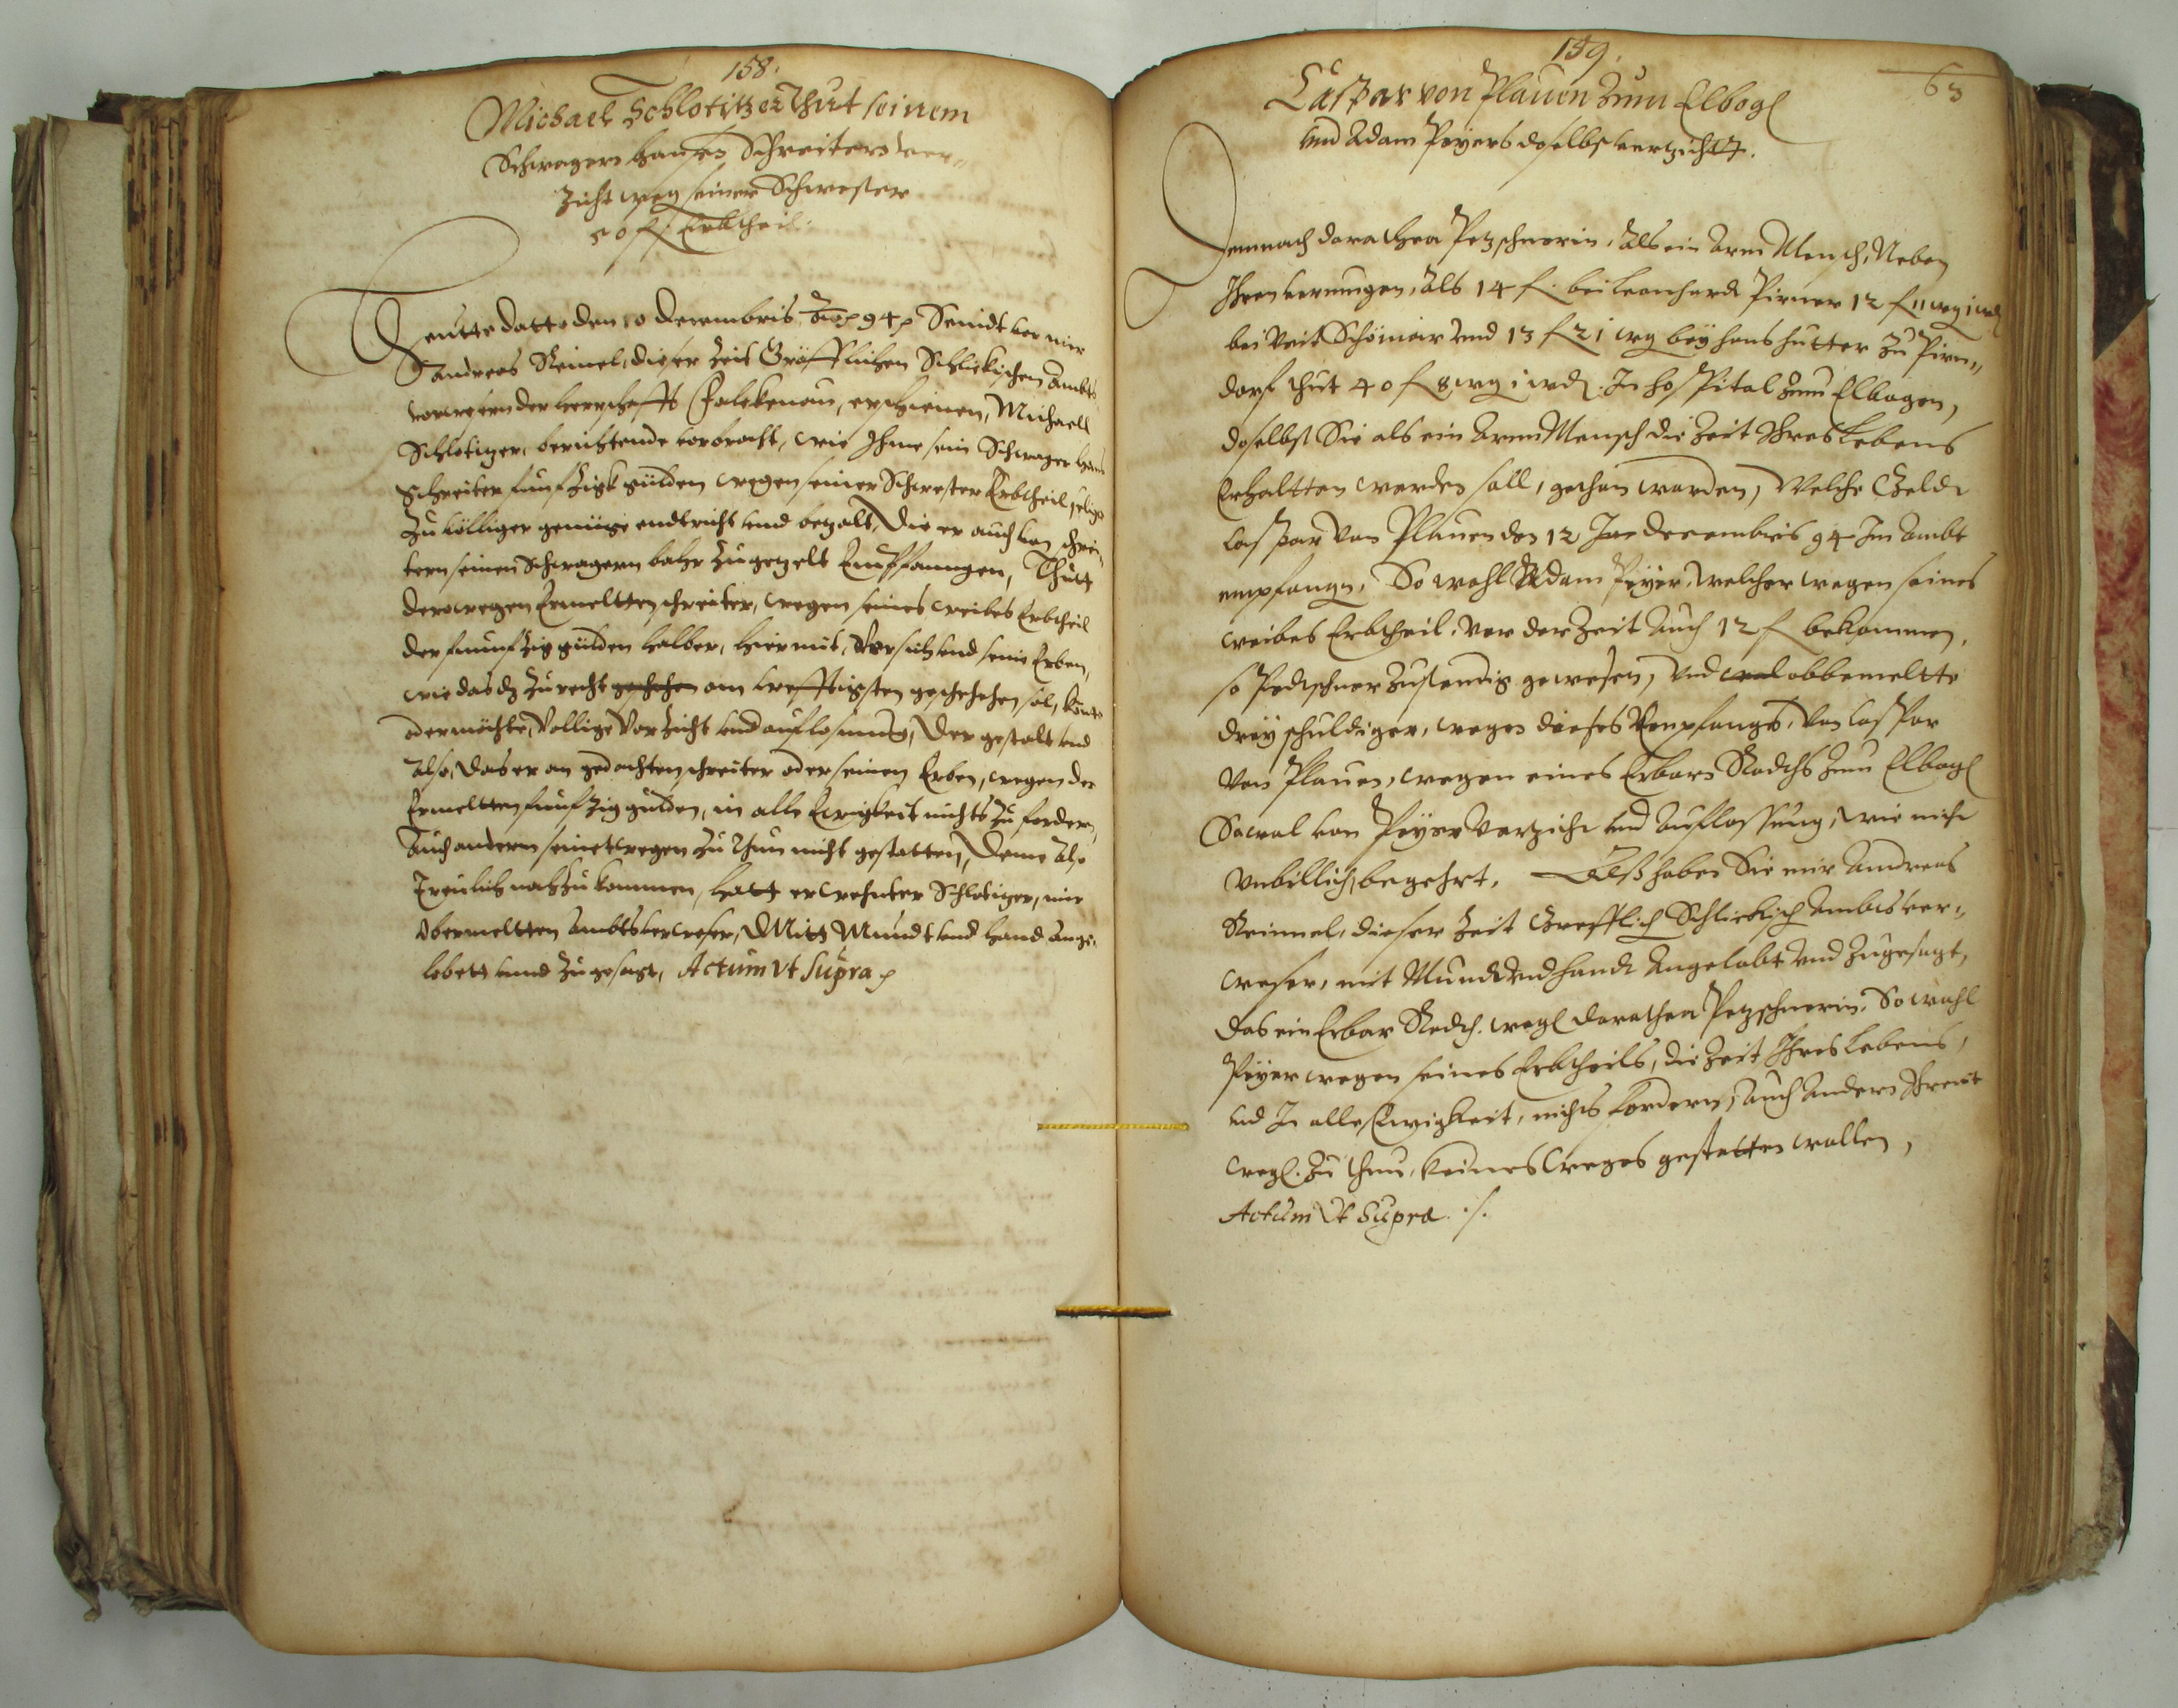 158.
Michael Schlotitzer Thut seinem
Schwagern Hansen Schreitern ver¬
Zicht weg seiner Schwester
50 fl: Erbtheil.
Heutte datto den 10 decembris, ao 94 Seindt vor mir
Andreas Steinel, dieser Zeit Gräfflichen Schlickischen Ambts
vorwesern der herrschafft Falckenau, erschienen, Michaell
Schlotizer, berichtende vorbracht, wie Ihme sein Schwager Hans
Schreiter funfzigk gülden wegen seiner Schwester Erbtheil
Zu völliger genüge endtricht und bezalt, die er auch von schrei¬
tern seinen Schwagern bahr Zugezelt Empfanngen, Thutt
derowegen Ermeltten schreiter, wegen seines weibes Erbtheil
der funnfzig gülden halber, hiermit, vor sich und seine Erben,
wie das Zu recht geschehen am kreftigsten geschehen sol, konte
oder möchte, Vollige Vorzicht und auflosung, Der gestalt und
Also, das er an gedachten schreiter oder seinen Erben, wegen der
Ermeltten funfzig gulden, in alle Ewigkeit nichts Zu fordern,
Auch andern seinetwegen Zu thun nicht gestatten, Deme also
Treulich nachzukommen, hatt erwehnter Schlotizer, mir
Obermeltten Ambtsverweser, Mitt Mundt und Hand Ange¬
lobett unnd Zugesagt, Actum Vt supra
159.
63
Caspar von Plauen Zum Elbog
Und Adam Peyers doselbs vertzicht.
Demnach dorathea Petzschnerin, Als ein Arm Mensch, Neben
Ihren 14 f. bei Leonhardt Pirner 12 f 11 wg 1 wd
bei Veit Schönar Und 13 f 21 wg bey hans hutter Zu Pirn¬
dorf thut 40 f 8 wg 1 wd. In hospital Zum Elbogen,
doselbst Sie als ein Arm Mensch die Zeit Ihres Lebens
Erhaltten werden soll, gethan worden, Welche Geldt
Caspar von Plauen den 12 decembris 94 Im Ambt
empfangn, So wohl Adam Peyer, welcher wegen seines
weibes Erbtheil, vor der Zeit Auch 12 f bekommen,
so Petzschner Zustendig gewesen, Und obbemeltte
drey schuldiger, wegen dieses Empfangs, von Caspar
von Plauen, wegen eines Erbarn Radths Zum Elbog
Sowol von Peyer Verzicht und Aufflassung, wie nicht
Unbillich, begehrt. Alß haben Sie mir Andreas
Steinnel, dieser Zeit Grefflich Schlickisch Ambtsver¬
weser, mit Mundt Und handt Angelobt Und Zugesagt,
das ein Erbar Radth. wegl dorathea Petzschnerin, So wohl
Peyer wegen seines Erbtheils, die Zeit Ihres Lebens,
Und In alle Ewigkeit, nichts fordern, Auch Andern Ihrent
wegl. Zu thun, keines weges gestatten wollen,
Actum Ut Supra ./.